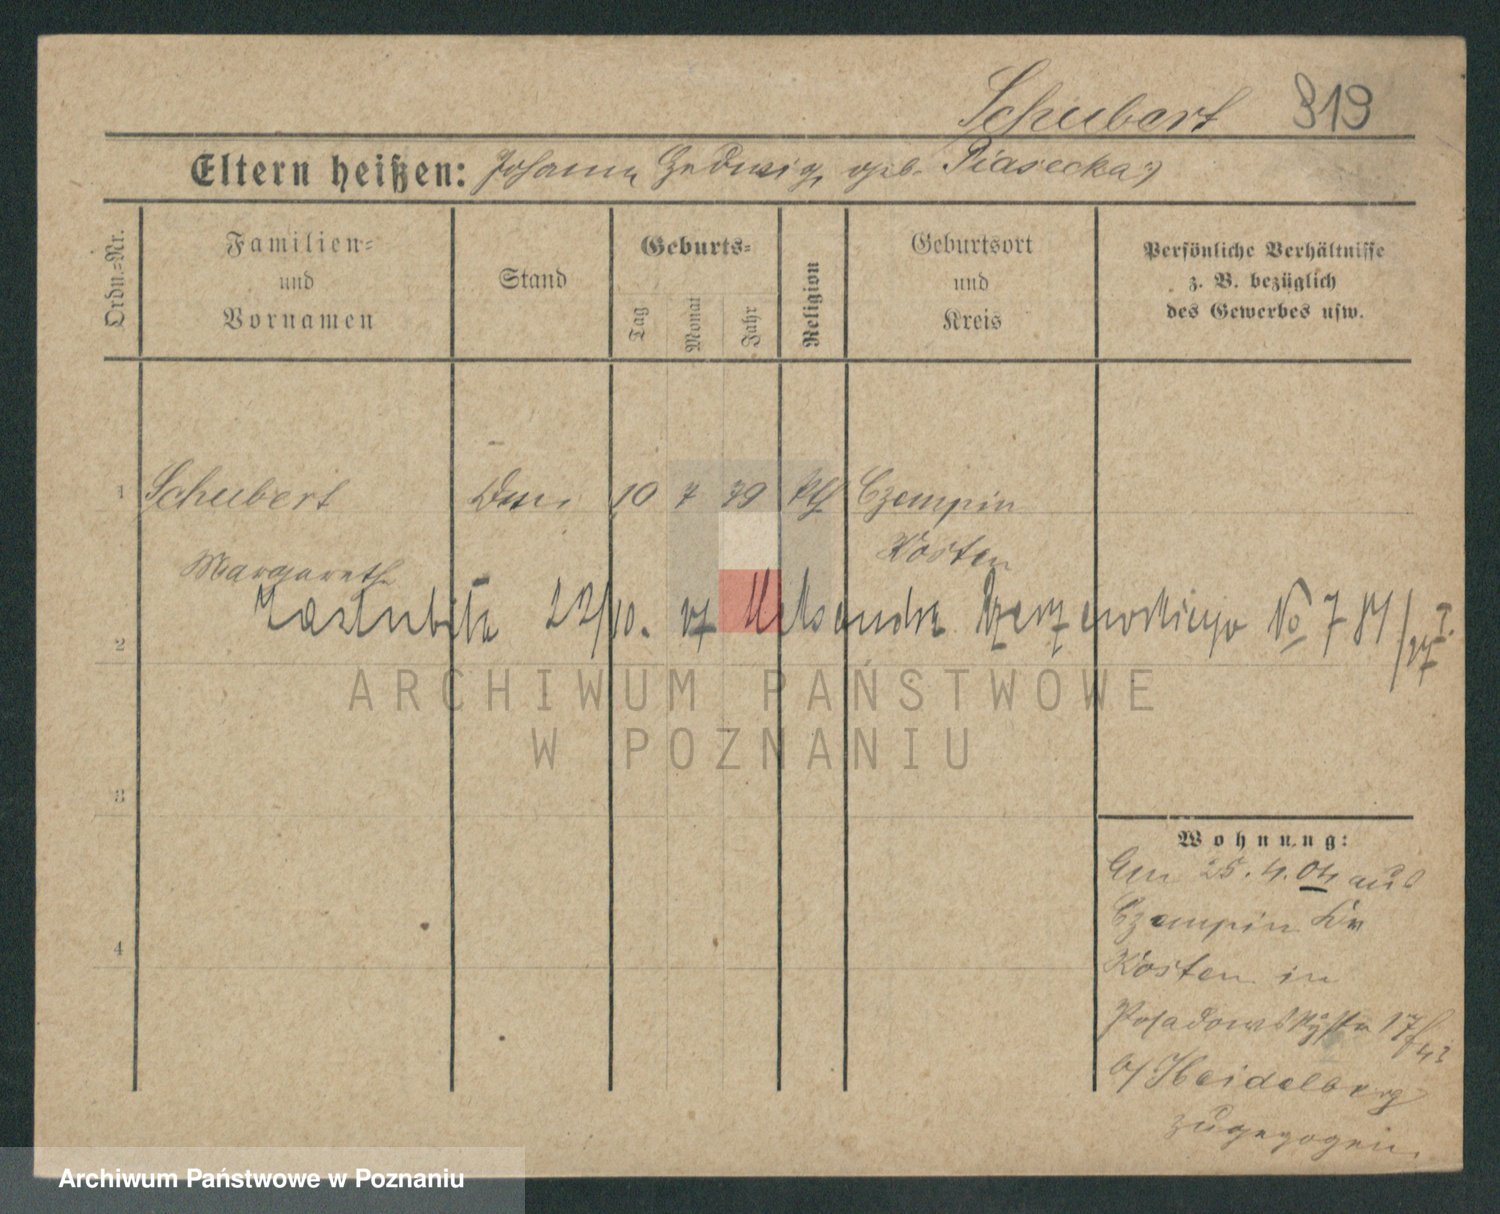 Schubert 319
Eltern heißen: Johann, Hedwig, geb. Piasecka
Ordn.=Nr.
Familien=
und
Vornamen
Stand
Geburts=
Tag
Monat
Jahr
Religion
Geburtsort
und
Kreis
Persönliche Verhältnisse
z. B. bezüglich
des Gewerbes usw.
1 Schubert 10 7 79 kth Czempin
Margareth Kosten
zaślubiła 22/10. 17 Aleksandra No 781/17
2
3
4
Wohnung:
Am 25.4.04 aus
Czempin Kr
Kosten in
Posadowskystr 17
b/ Heidelberg
zugezogen.
ARCHIWUM PAŃSTWOWE
W POZNANIU
Archiwum Państwowe w Poznaniu